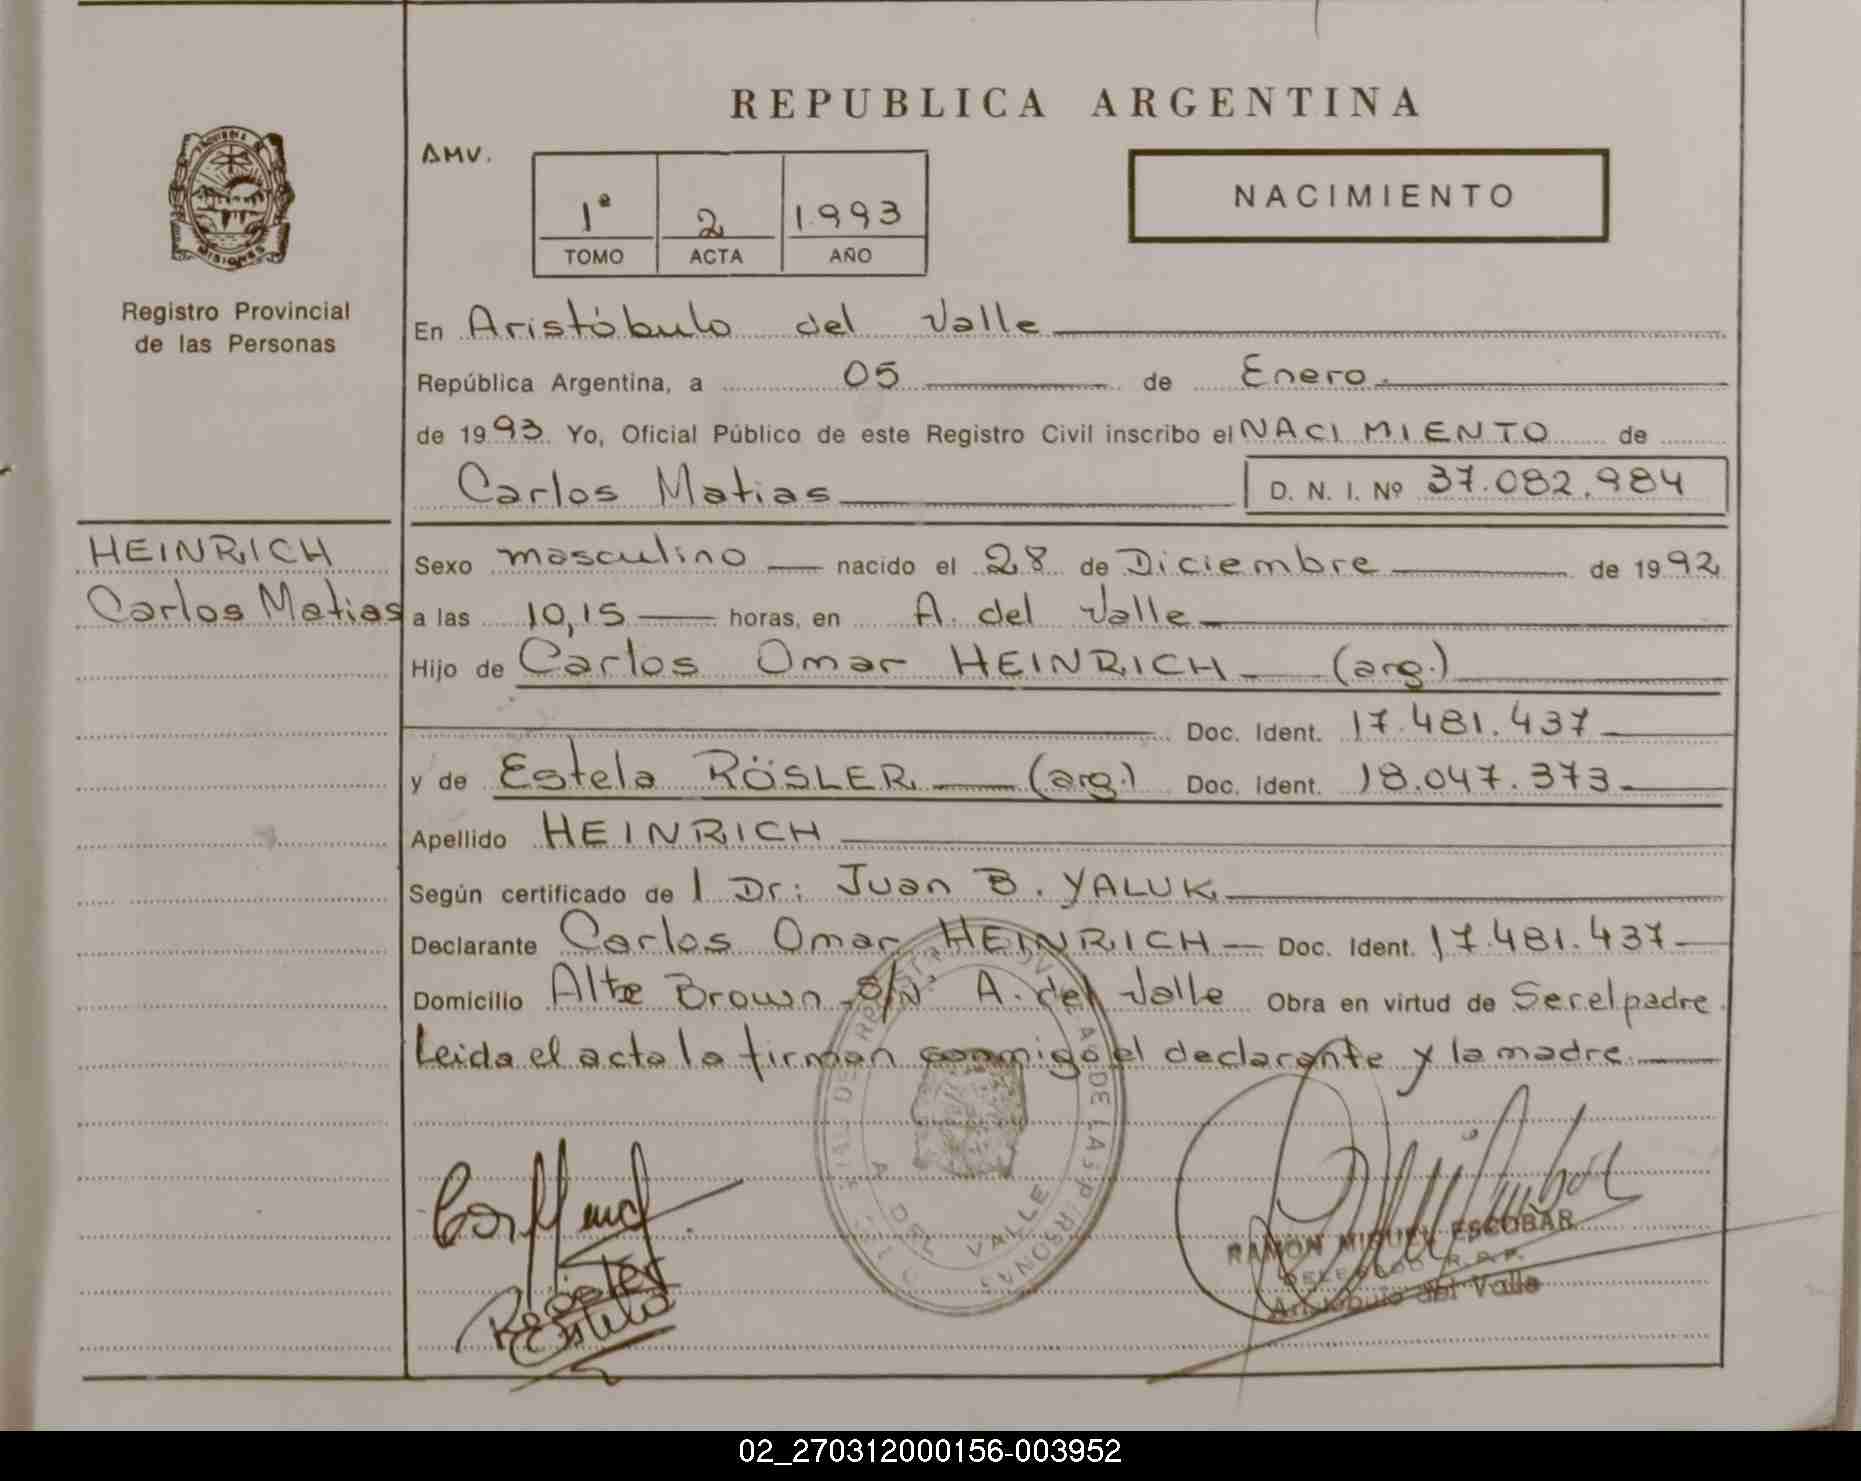 REPUBLICA ARGENTINA
AMV.
1ª 2 1.993
TOMO ACTA AÑO
NACIMIENTO
MISIONES
Registro Provincial
de las Personas
En Aristóbulo del Valle
República Argentina, a 05 de Enero.
de 1993. Yo, Oficial Público de este Registro Civil inscribo el NACIMIENTO de
Carlos Matias D. N. I. Nº 37.082.984
HEINRICH
Carlos Matias
Sexo masculino nacido el 28 de Diciembre de 1992
a las 10,15 horas, en A. del Valle
Hijo de Carlos Omar HEINRICH (arg.)
Doc. Ident. 17.481.437
y de Estela RÖSLER (arg.) Doc. Ident. 18.047.373
Apellido HEINRICH
Según certificado de l Dr: Juan B. YALUK
Declarante Carlos Omar HEINRICH Doc. Ident. 17.481.437
Domicilio Alte Brown S/N. A. del Valle Obra en virtud de Ser el padre
Leida el acta la firman conmigo el declarante y la madre.
A. DEL VALLE
Estela
RAMON MIGUEL ESCOBAR
DELEGADO R.P.P.
Aristobulo del Valle
02_270312000156-003952